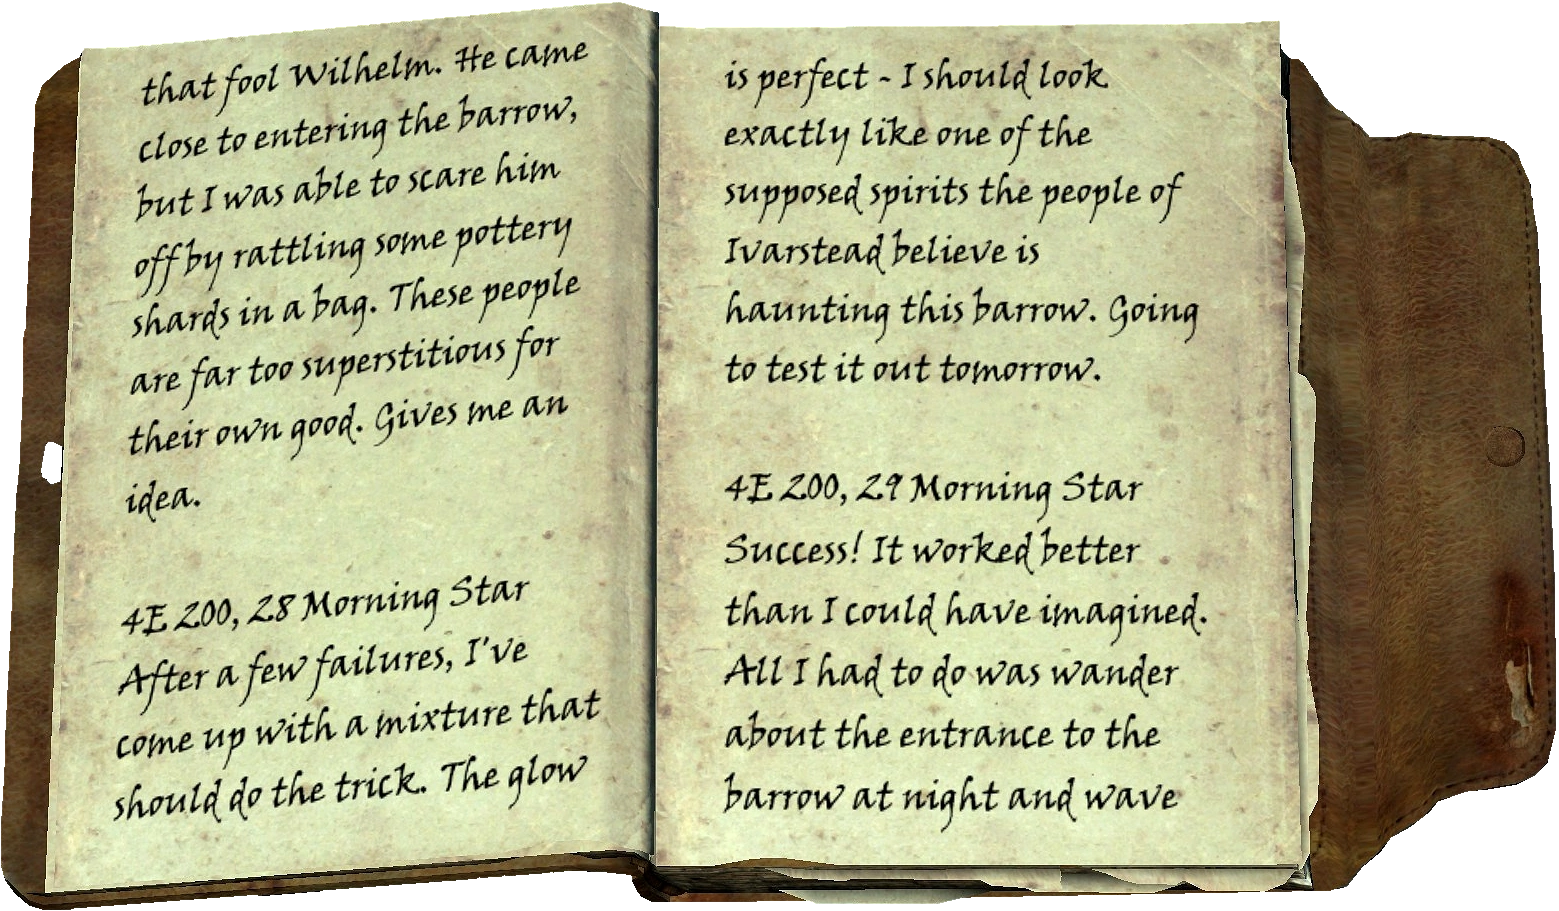 that fool Wilhelm. He came
close to entering the barrow,
but I was able to scare him
off by rattling some pottery
shards in a bag. These people
are far too superstitious for
their own good. Gives me an
idea.
4E 200, 28 Morning Star
After a few failures, I've
come up with a mixture that
should do the trick. The glow
is perfect - I should look
exactly like one of the
supposed spirits the people of
Ivarstead believe is
haunting this barrow. Going
to test it out tomorrow.
4E 200, 29 Morning Star
Success! It worked better
than I could have imagined.
All I had to do was wander
about the entrance to the
barrow at night and wave